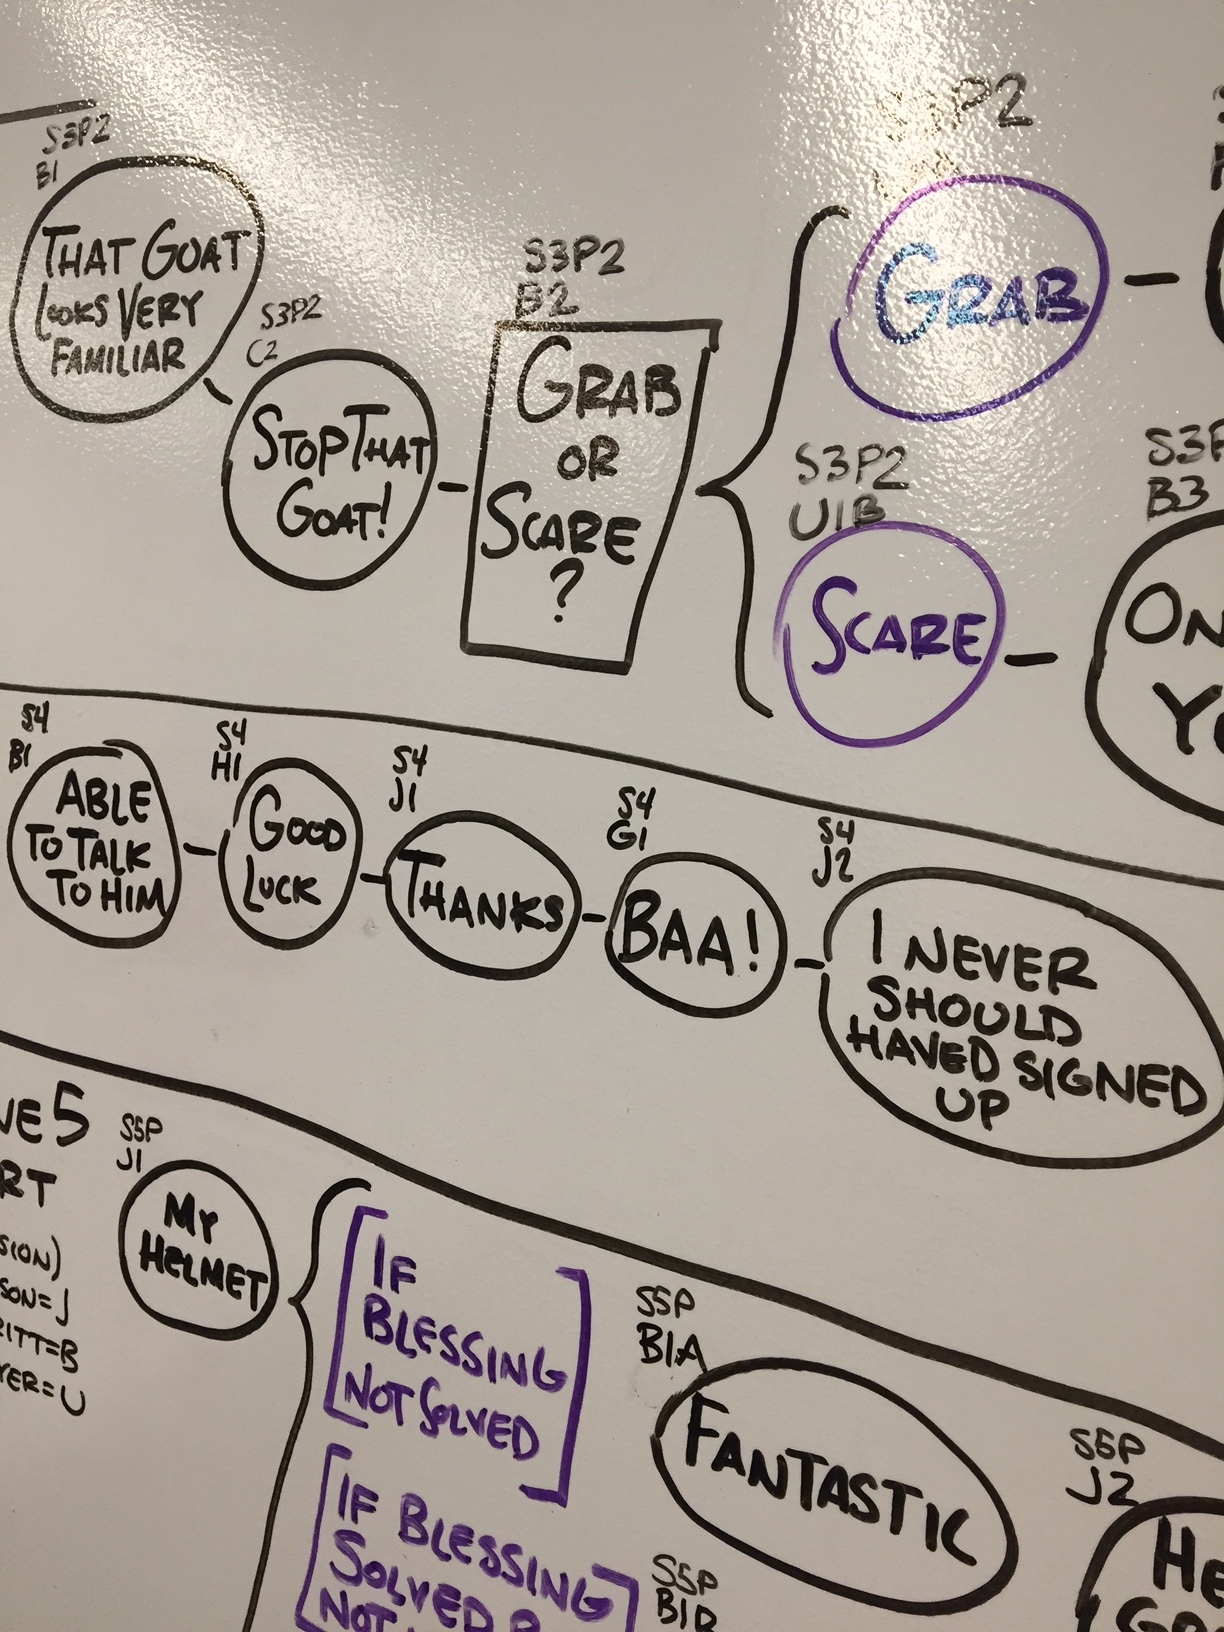 S3P2
B1
THAT GOAT
LOOKS VERY
FAMILIAR
S3P2
C2
STOP THAT
GOAT!
S3P2
B2
GRAB
OR
SCARE
?
S3P2
GRAB
S3P2
U1B
SCARE
B3
S4
B1
ABLE
TO TALK
TO HIM
S4
H1
GOOD
LUCK
S4
J1
THANKS
S4
G1
BAA!
S4
J2
I NEVER
SHOULD
HAVED SIGNED
UP
5
S5P
J1
MY
HELMET
=J
=B
=U
IF
BLESSING
NOT SOLVED
IF BLESSING
SOLVED
NOT
S5P
B1A
FANTASTIC
S5P
S5P
J2